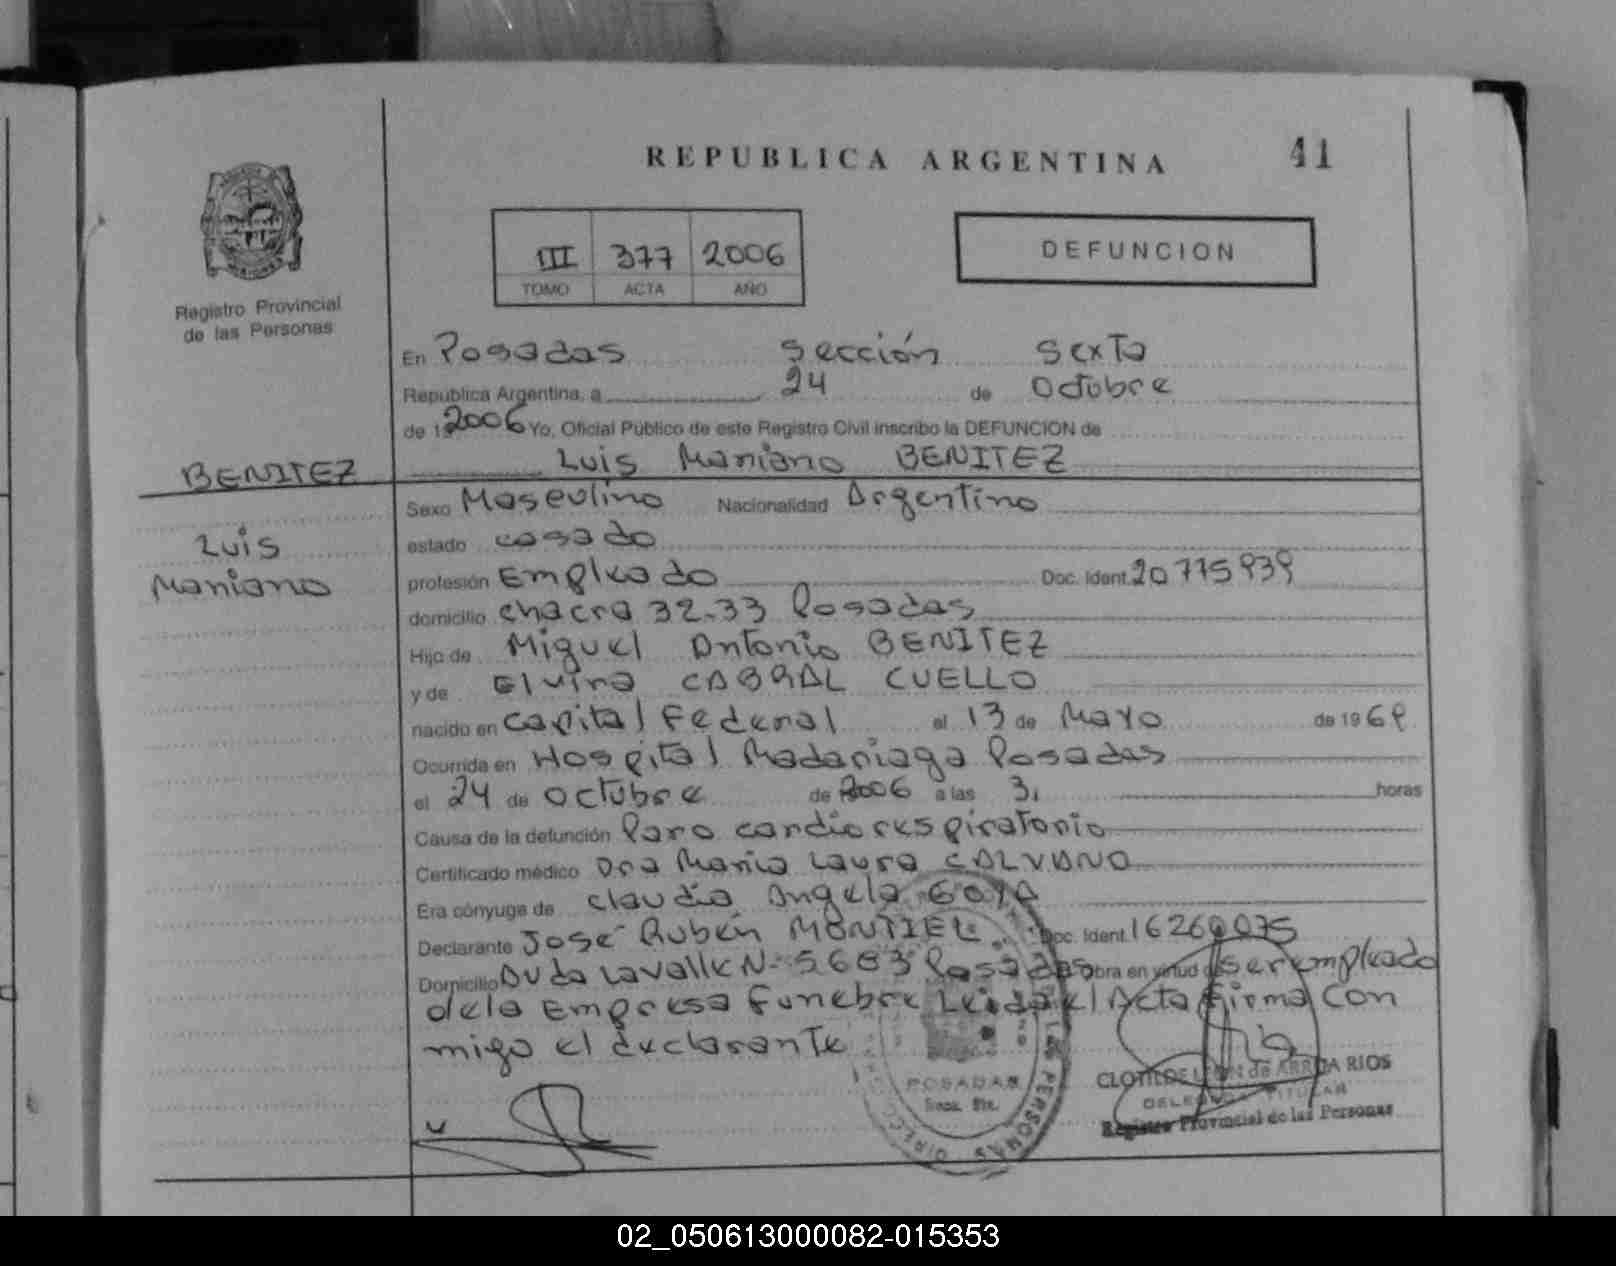 REPUBLICA ARGENTINA 41
III 377 2006
TOMO ACTA AÑO
DEFUNCION
Registro Provincial
de las Personas
En Posadas Sección Sexta
Republica Argentina, a 24 de Octubre
de 2006 Yo, Oficial Público de este Registro Civil inscribo la DEFUNCION de
BENITEZ Luis Mariano BENITEZ
Luis
Mariano
Sexo Masculino Nacionalidad Argentino
estado casado
profesión Empleado Doc. Ident. 20775939
domicilio chacra 32-33 Posadas
Hijo de Miguel Antonio BENITEZ
y de Elvira CABRAL CUELLO
nacido en Capital Federal el 13 de Mayo de 1969
Ocurrida en Hospital Madariaga Posadas
el 24 de Octubre de 2006 a las 3, horas
Causa de la defunción Paro cardiorespiratorio
Certificado médico Dra Maria Laura CALVANO
Era cónyuge de Claudia Angela
Declarante José Rubén MONTIEL Doc. Ident. 16260075
Domicilio Lavalle N- 5683 Posadas Obra en virtud de ser empleado
de la Empresa Funebre Leida el Acta firma Con
migo el declarante
POSADAS
CLOTILDE de ARROA RIOS
DELEGADA TITULAR
Registro Provincial de las Personas
02_050613000082-015353